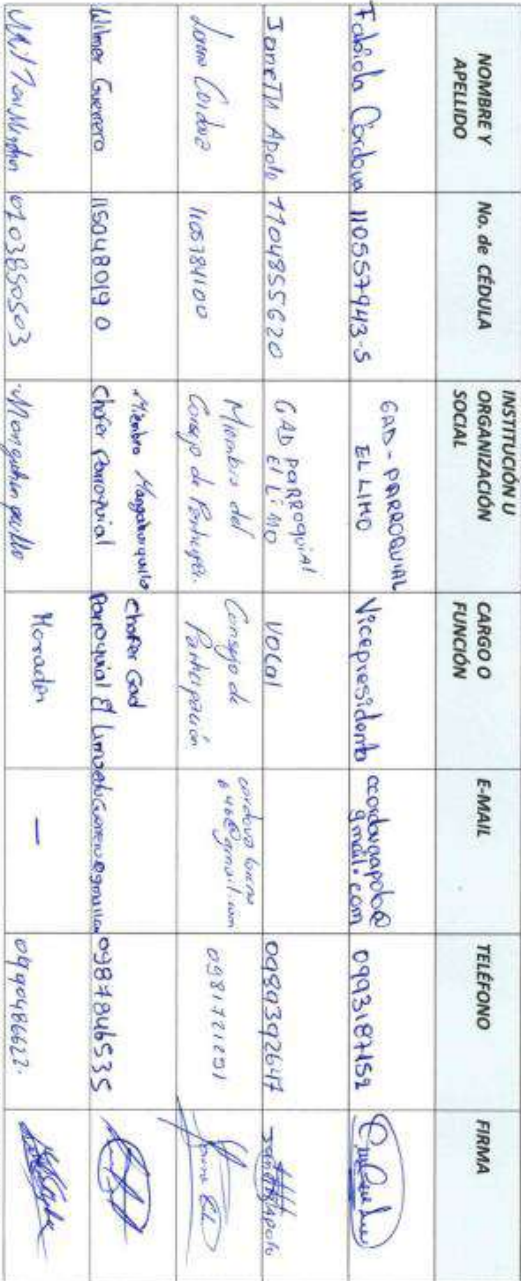 NOMBRE Y
APELLIDO
No. de CÉDULA
INSTITUCIÓN U
ORGANIZACIÓN
SOCIAL
CARGO O
FUNCIÓN
E-MAIL
TELÉFONO
FIRMA
Fabiola Córdova
110557943-5
GAD-PARROQUIAL
EL LIMO
Vicepresidenta
ccordovaapolo@
gmail.com
0993187452
JaneTh Apolo
1104855620
GAD PARROquiAl
El LiMO
Vocal
0989392647
Cordova
1105784100
Miembro del
Consejo de
Consejo de
Participación
@gmail.com
0981721251
Wilmer Guerrero
115048019 0
Miembro
Chofer Parroquial
Chofer Gad
Parroquial El
0987846535
0703850503
Morador
—
0990486622.